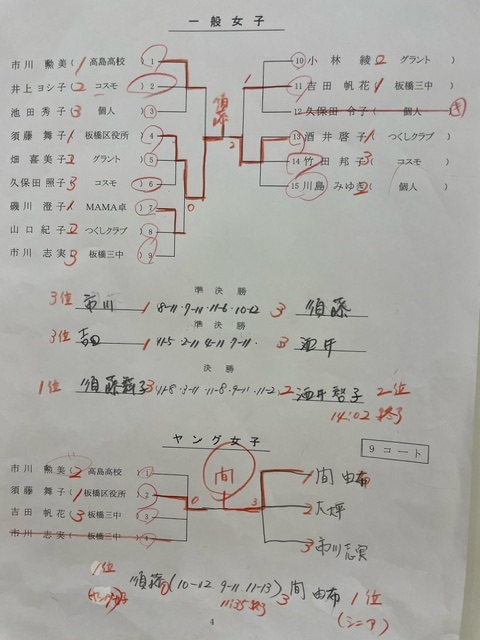 一般女子
市川 勲美 ( 1 高島高校 ) 1
井上 ヨシ子 ( 2 コスモ ) 2
池田 秀子 ( 3 個人 ) 3
須藤 舞子 ( 1 板橋区役所 ) 4
畑 喜美子 ( 2 グラント ) 5
久保田 照子 ( 3 コスモ ) 6
磯川 澄子 ( 1 MAMA卓 ) 7
山口 紀子 ( 2 つくしクラブ ) 8
市川 志実 ( 3 板橋三中 ) 9
須藤
1
2
0
10 小林 綾 ( 2 グラント )
11 吉田 帆花 ( 1 板橋三中 )
12 久保田 令子 ( 個人 )
13 酒井 啓子 ( 1 つくしクラブ )
14 竹田 邦子 ( 3 コスモ )
15 川島 みゆき ( 2 個人 )
準決勝
3位 市川 1 8-11 ・ 9-11 ・ 11-6 ・ 10-12 3 須藤
準決勝
3位 吉田 1 11-5 2-11 4-11 9-11 3 酒井
決勝
1位 須藤舞子 3 11-8 ・ 3-11 ・ 11-8 ・ 9-11 ・ 11-2 2 酒井啓子 2位
14:02 終了
ヤング女子
9コート
市川 勲美 ( 2 高島高校 ) 1
須藤 舞子 ( 1 板橋区役所 ) 2
吉田 帆花 ( 3 板橋三中 ) 3
市川 志実 ( 板橋三中 ) 4
間
0
3
1 間 由布
2 大坪
3 市川 志実
1位
(ヤング女子)
須藤 0 ( 10-12 9-11 11-13 ) 3 間 由布 1位
11:35 終了
(シニア)
4